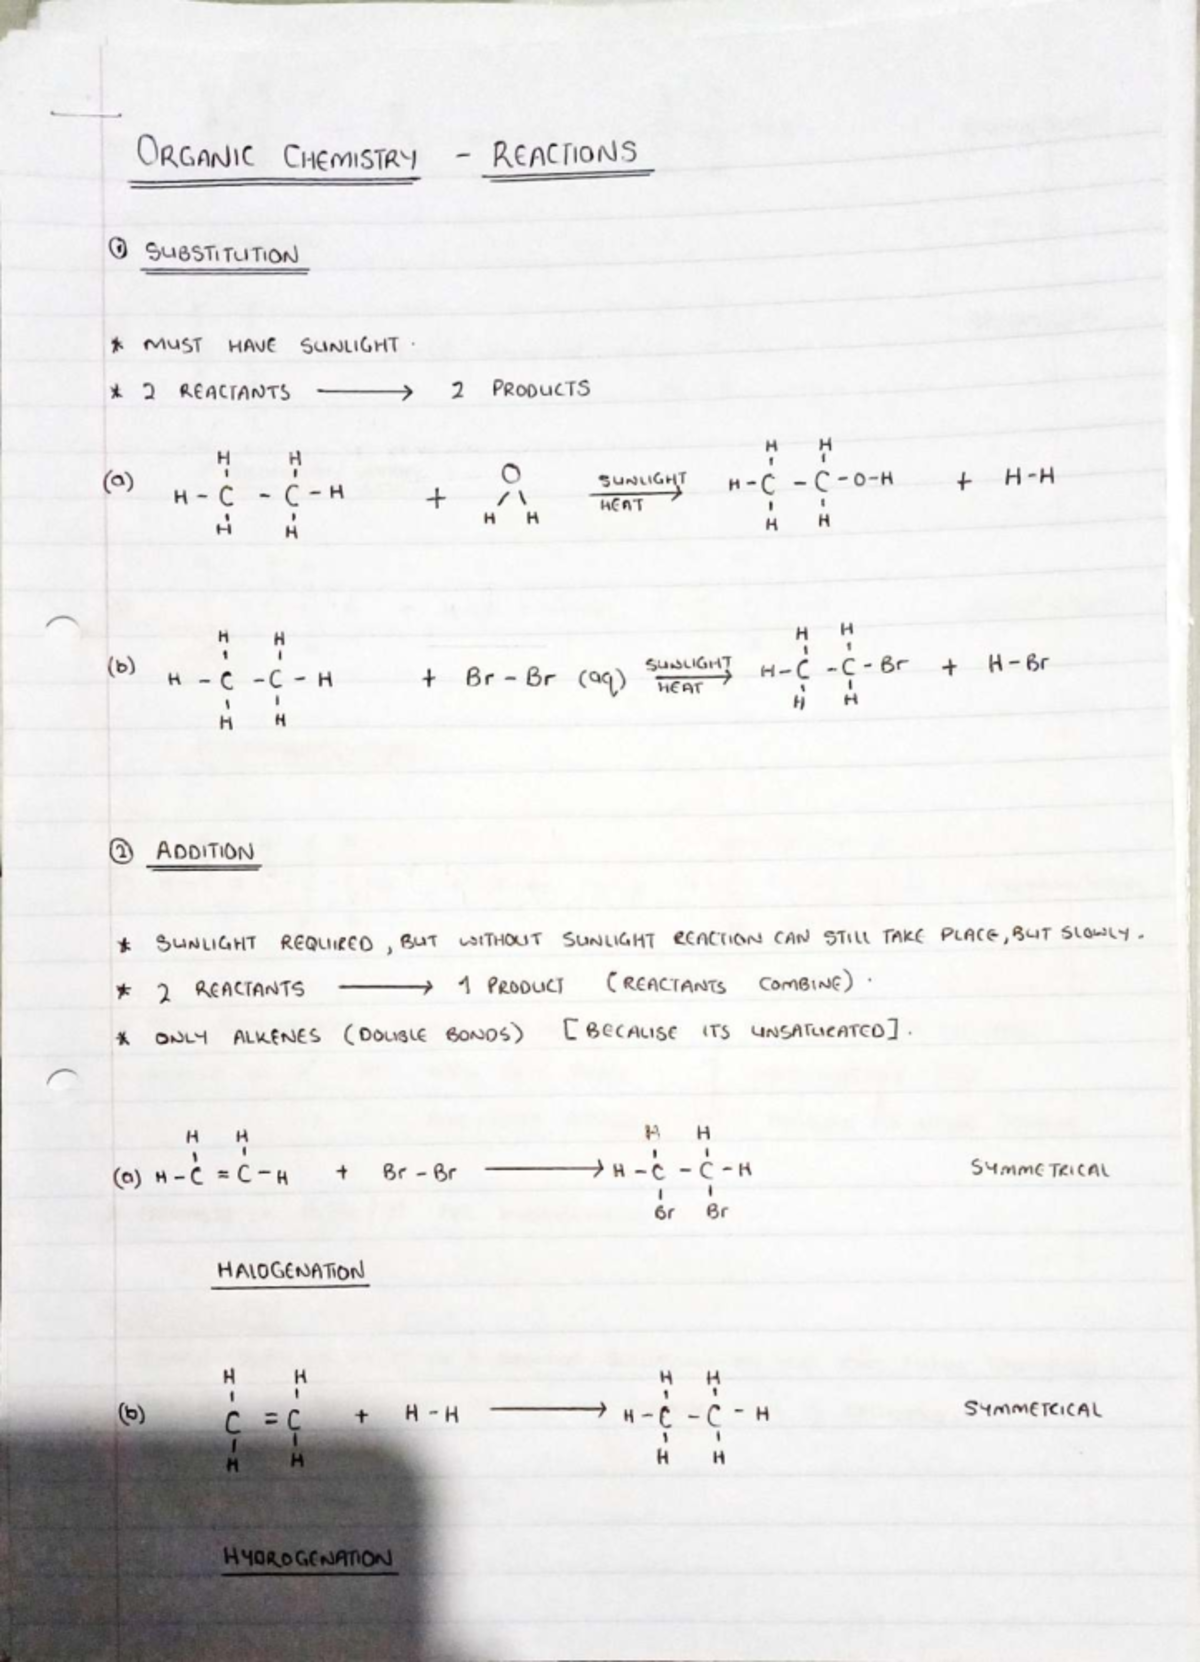 ORGANIC CHEMISTRY - REACTIONS
① SUBSTITUTION
* MUST HAVE SUNLIGHT.
* 2 REACTANTS ⟶ 2 PRODUCTS
H H H H
(a) H-C-C-H + O SUNLIGHT H-C-C-O-H + H-H
HEAT
H H H H H H
H H H H
(b) H-C-C-H + Br-Br (aq) SUNLIGHT H-C-C-Br + H-Br
HEAT
H H H H
② ADDITION
* SUNLIGHT REQUIRED, BUT WITHOUT SUNLIGHT REACTION CAN STILL TAKE PLACE, BUT SLOWLY.
* 2 REACTANTS ⟶ 1 PRODUCT (REACTANTS COMBINE).
* ONLY ALKENES (DOUBLE BONDS) [BECAUSE ITS UNSATURATED].
H H H H
(a) H-C=C-H + Br-Br ⟶ H-C-C-H SYMMETRICAL
Br Br
HALOGENATION
H H H H
(b) C=C + H-H ⟶ H-C-C-H SYMMETRICAL
H H H H
HYDROGENATION